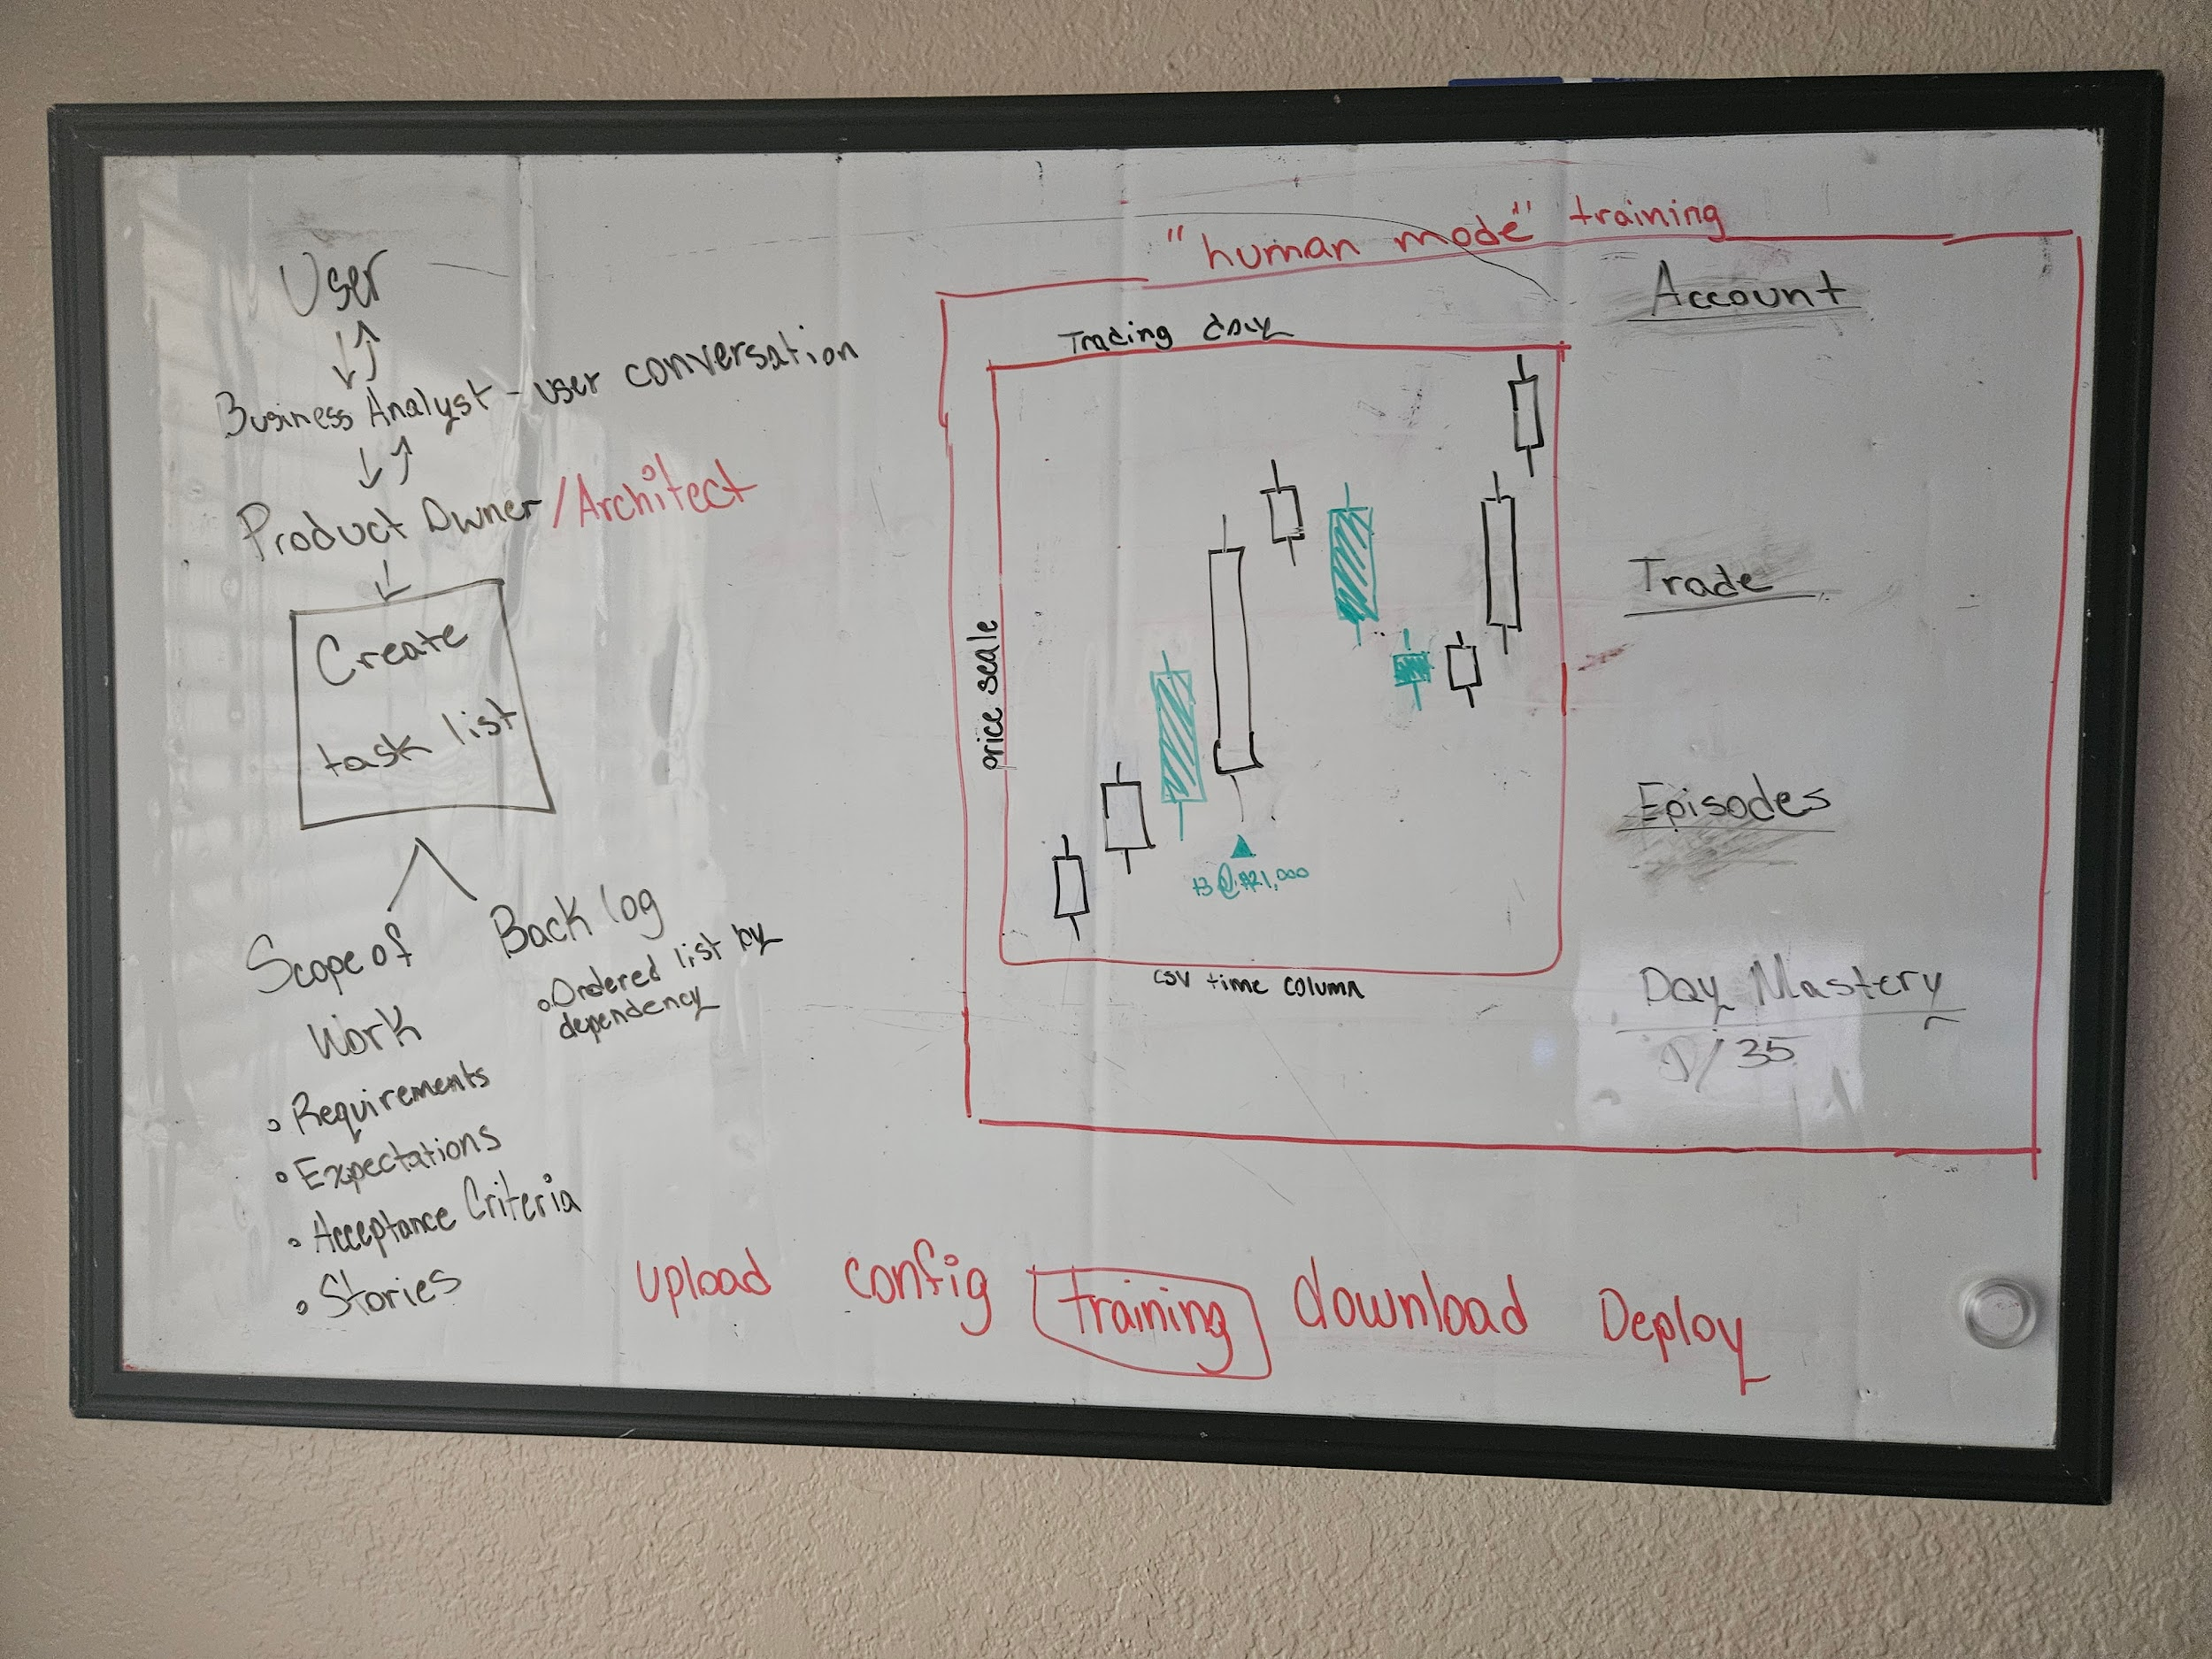 User
Business Analyst - user conversation
Product Owner/Architect
Create
task list
Scope of
Work
• Requirements
• Expectations
• Acceptance Criteria
• Stories
Back log
• Ordered list by
dependency
"human mode" training
Trading day
price scale
@ $21,000
csv time column
Account
Trade
Episodes
Day Mastery
/35
upload config training download Deploy